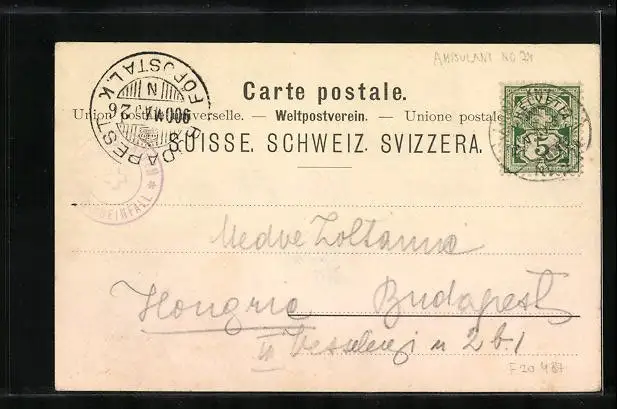 AMBULANT NO 24
Carte postale.
Union postale universelle. — Weltpostverein. — Unione postale
SUISSE. SCHWEIZ. SVIZZERA.
BUDAPEST FŐPOSTA I. K.
900 26
N
HELVETIA
5
RHEINFALL
Medve Zoltánné
Hongrie Budapest
III Vesselényi u 2 b. 1
F 20 487